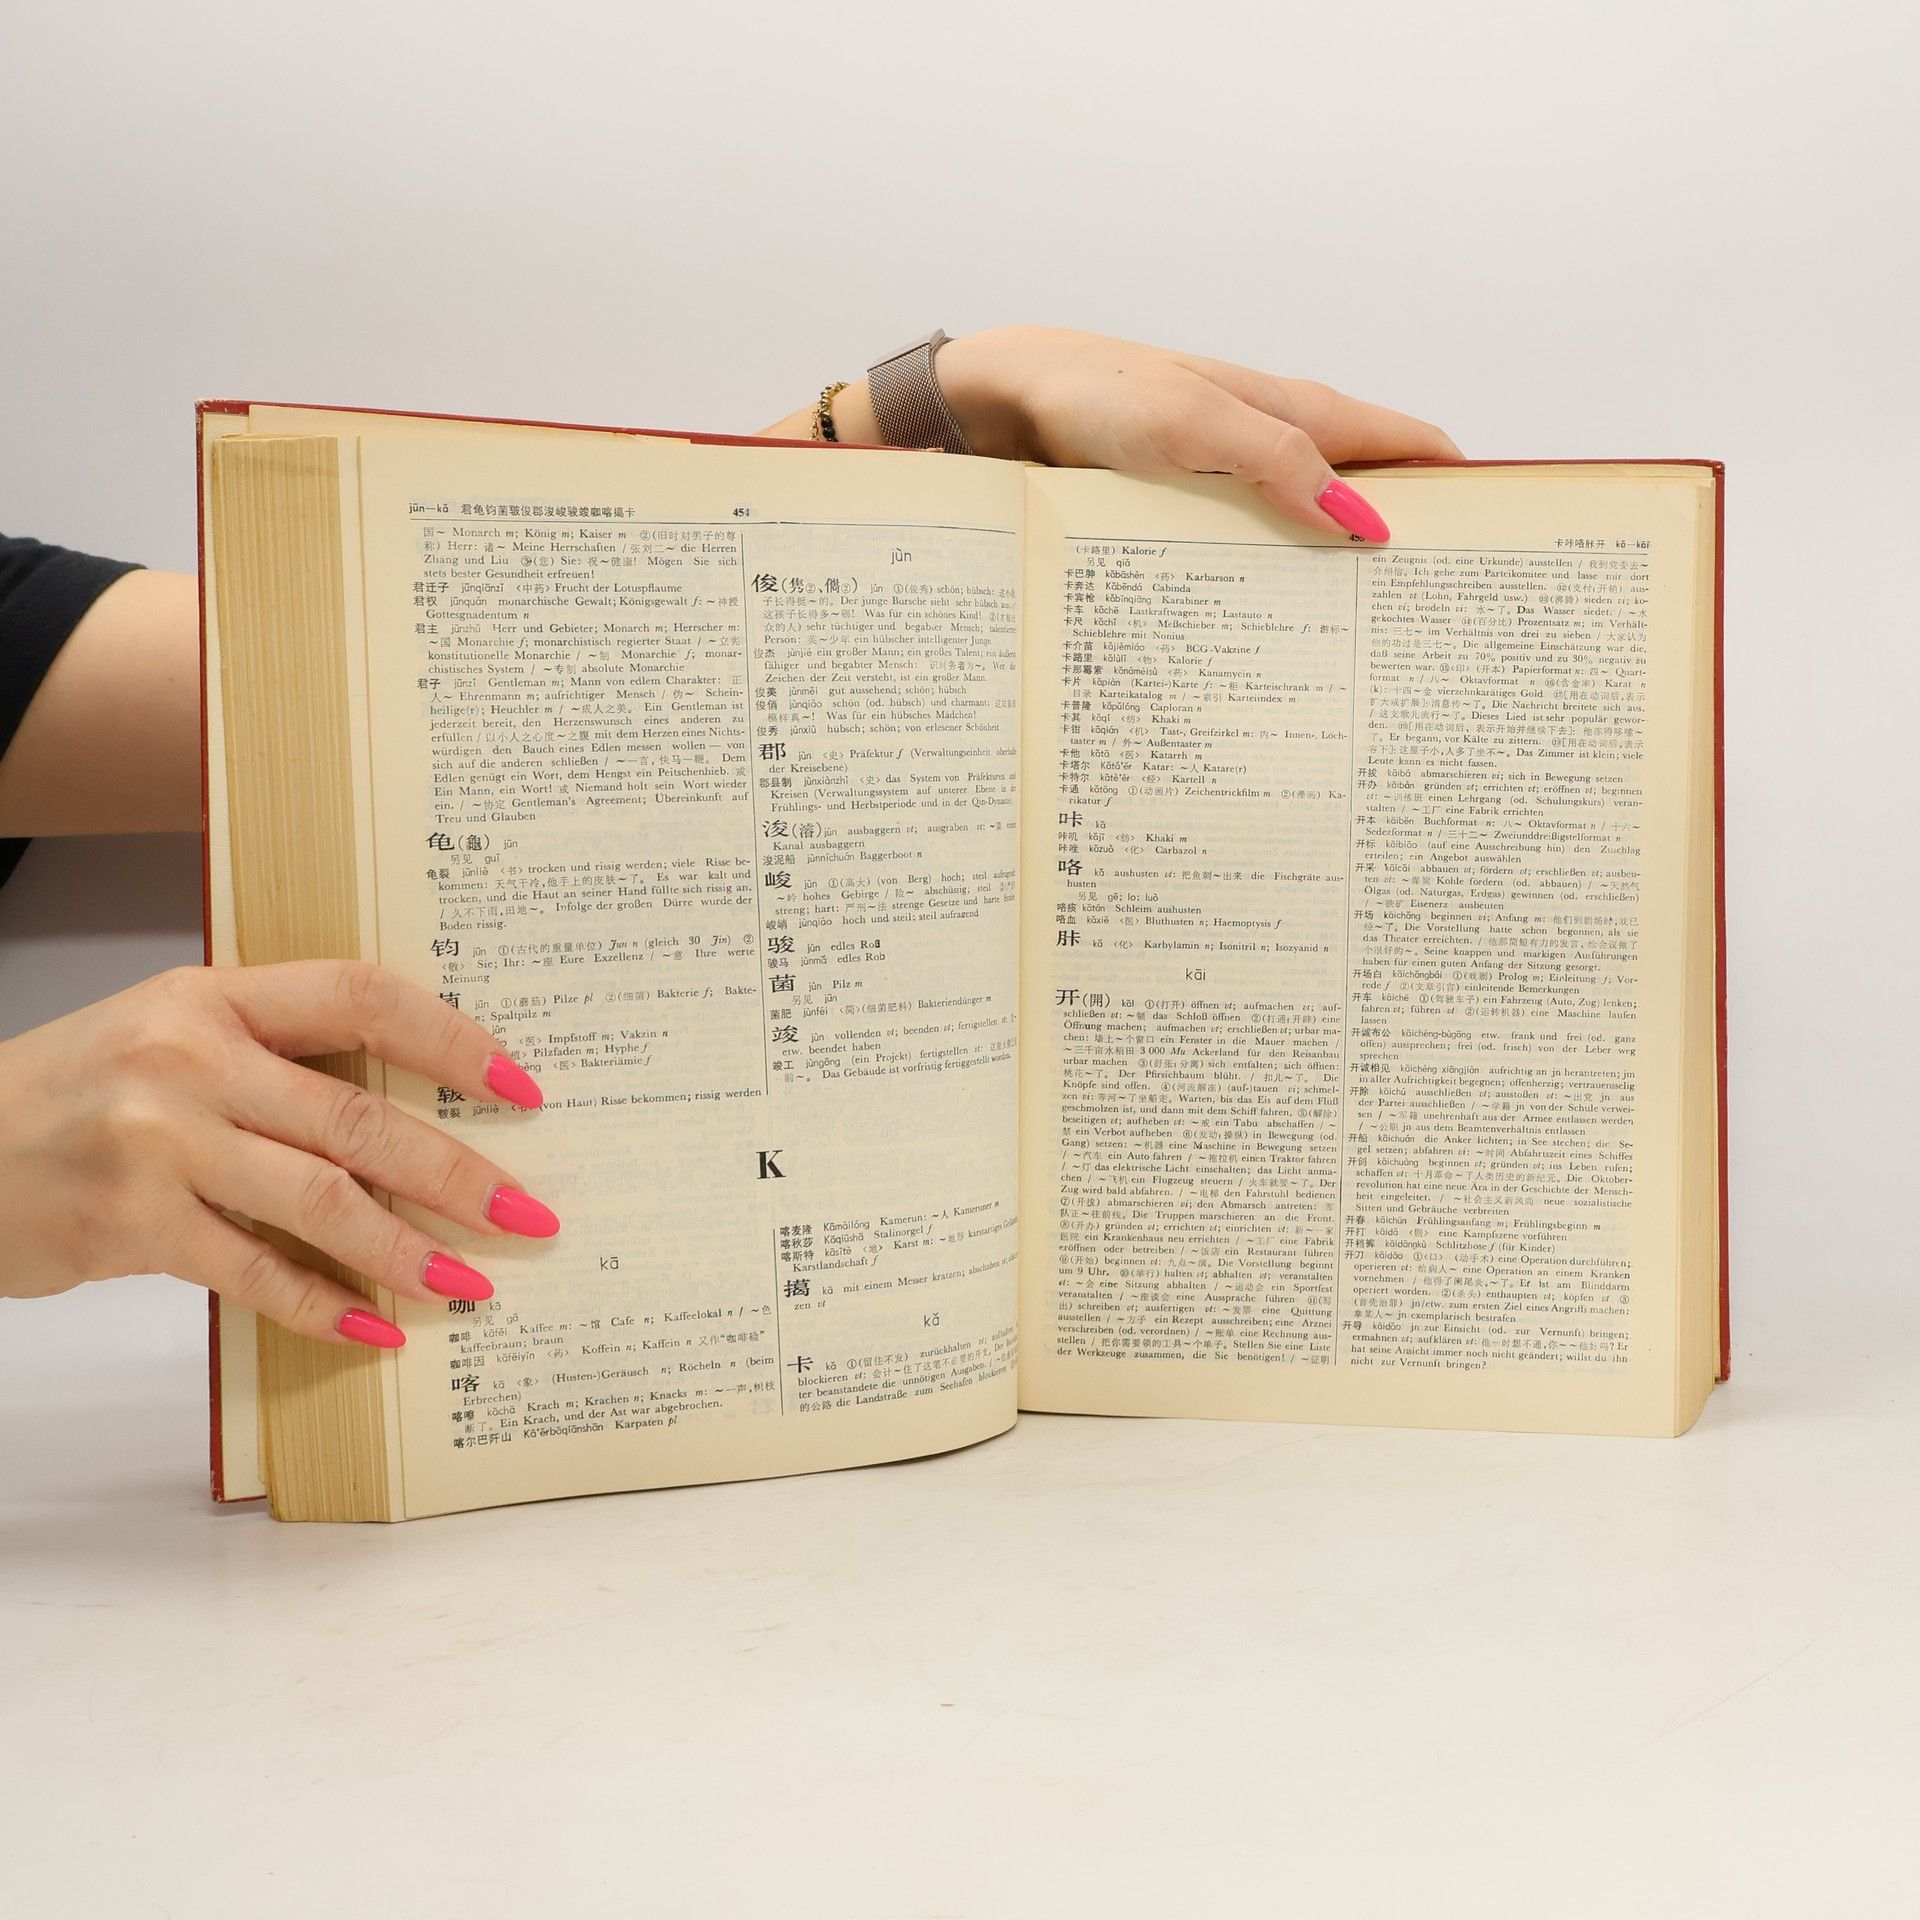 jūn—kǎ 君龟钧菌皲俊郡浚峻骏竣咖喀揭卡 454
国～ Monarch m; König m; Kaiser m ②(旧时对男子的尊
称) Herr: 诸～ Meine Herrschaften / 张刘二～ die Herren
Zhang und Liu ③(您) Sie: 祝～健康! Mögen Sie sich
stets bester Gesundheit erfreuen!
君迁子 jūnqiānzǐ <中药> Frucht der Lotuspflaume
君权 jūnquán monarchische Gewalt; Königsgewalt f: ～神授
Gottesgnadentum n
君主 jūnzhǔ Herr und Gebieter; Monarch m; Herrscher m:
～国 Monarchie f; monarchistisch regierter Staat / ～立宪
konstitutionelle Monarchie / ～制 Monarchie f; monar-
chistisches System / ～专制 absolute Monarchie
君子 jūnzǐ Gentleman m; Mann von edlem Charakter: 正
人～ Ehrenmann m; aufrichtiger Mensch / 伪～ Schein-
heilige(r); Heuchler m / ～成人之美。 Ein Gentleman ist
jederzeit bereit, den Herzenswunsch eines anderen zu
erfüllen / 以小人之心度～之腹 mit dem Herzen eines Nichts-
würdigen den Bauch eines Edlen messen wollen — von
sich auf die anderen schließen / ～一言,快马一鞭。 Dem
Edlen genügt ein Wort, dem Hengst ein Peitschenhieb. 或
Ein Mann, ein Wort! 或 Niemand holt sein Wort wieder
ein. / ～协定 Gentleman's Agreement; Übereinkunft auf
Treu und Glauben
龟(龜) jūn
另见 guī
龟裂 jūnliè <书> trocken und rissig werden; viele Risse be-
kommen: 天气干冷,他手上的皮肤～了。 Es war kalt und
trocken, und die Haut an seiner Hand füllte sich rissig an.
/ 久不下雨,田地～。 Infolge der großen Dürre wurde der
Boden rissig.
钧 jūn ①(古代的重量单位) Jun n (gleich 30 Jin) ②
<敬> Sie; Ihr: ～座 Eure Exzellenz / ～意 Ihre werte
Meinung
菌 jūn ①(蘑菇) Pilze pl ②(细菌) Bakterie f; Bakte-
n; Spaltpilz m
jùn
<医> Impfstoff m; Vakzin n
Pilzfaden m; Hyphe f
<医> Bakteriämie f
皲
皲裂 jūnliè (von Haut) Risse bekommen; rissig werden
jùn
俊(隽②、儁②) jùn ①(俊秀) schön; hübsch:
子长得挺～的。 Der junge Bursche sieht sehr hübsch aus. /
这孩子长得多～啊! Was für ein schönes Kind! ②
众的人) sehr tüchtiger und begabter Mensch; talentierte
Person: 英～少年 ein hübscher intelligenter Junge
俊杰 jùnjié ein großer Mann; ein großes Talent; ein äußerst
fähiger und begabter Mensch: 识时务者为～。 Wer die
Zeichen der Zeit versteht, ist ein großer Mann.
俊美 jùnměi gut aussehend; schön; hübsch
俊俏 jùnqiào schön (od. hübsch) und charmant:
模样真～! Was für ein hübsches Mädchen!
俊秀 jùnxiù hübsch; schön; von erlesener Schönheit
郡 jùn <史> Präfektur f (Verwaltungseinheit oberhalb
der Kreisebene)
郡县制 jùnxiànzhì <史> das System von Präfekturen und
Kreisen (Verwaltungssystem auf unterer Ebene in der
Frühlings- und Herbstperiode und in der Qin-Dynastie)
浚(濬) jùn ausbaggern vt; ausgraben vt: einen
Kanal ausbaggern
浚泥船 jùnníchuán Baggerboot n
峻 jùn ①(高大) (von Berg) hoch; steil aufragend:
～岭 hohes Gebirge / 险～ abschüssig; steil ②
streng; hart: 严刑～法 strenge Gesetze und harte Strafen
峻峭 jùnqiào hoch und steil; steil aufragend
骏 jùn edles Roß
骏马 jùnmǎ edles Roß
菌 jùn Pilz m
另见 jūn
菌肥 jùnféi <简>(细菌肥料) Bakteriendünger m
竣 jùn vollenden vt; beenden vt; fertigstellen vt:
etw. beendet haben
竣工 jùngōng (ein Projekt) fertigstellen vt:
前～。 Das Gebäude ist vorfristig fertiggestellt worden.
K
kā
咖 kā
另见 gā
咖啡 kāfēi Kaffee m: ～馆 Cafe n; Kaffeelokal n / ～色
kaffeebraun; braun
咖啡因 kāfēiyīn <药> Koffein n; Kaffein n 又作"咖啡硷"
喀 kā <象> (Husten-)Geräusch n; Röcheln n (beim
Erbrechen)
喀嚓 kāchā Krach m; Krachen n; Knacks m: ～一声,树枝
断了。 Ein Krach, und der Ast war abgebrochen.
喀尔巴阡山 Kā'ěrbāqiānshān Karpaten pl
喀麦隆 Kāmàilóng Kamerun: ～人 Kameruner m
喀秋莎 Kāqiūshā Stalinorgel f
喀斯特 kāsītè <地> Karst m: ～地形 karstartiges
Karstlandschaft f
揭 kā mit einem Messer kratzen; abschaben vt;
zen vt
kǎ
卡 kǎ ①(留住不发) zurückhalten vt;
blockieren vt: 会计～住了这笔不必要的开支。
ter beanstandete die unnötigen Ausgaben. /
的公路 die Landstraße zum Seehafen blockieren
卡咔咯胩开 kǎ—kāi
(卡路里) Kalorie f
另见 qiǎ
卡巴胂 kǎbāshèn <药> Karbarson n
卡奔达 Kǎbēndá Cabinda
卡宾枪 kǎbīnqiāng Karabiner m
卡车 kǎchē Lastkraftwagen m; Lastauto n
卡尺 kǎchǐ <机> Meßschieber m; Schieblehre f: 游标～
Schieblehre mit Nonius
卡介苗 kǎjièmiáo <药> BCG-Vakzine f
卡路里 kǎlùlǐ <物> Kalorie f
卡那霉素 kǎnàméisù <药> Kanamycin n
卡片 kǎpiàn (Kartei-)Karte f: ～柜 Karteischrank m / ～
目录 Karteikatalog m / ～索引 Karteiindex m
卡普隆 kǎpǔlóng Caploran n
卡其 kǎqí <纺> Khaki m
卡钳 kǎqián <机> Tast-, Greifzirkel m: 内～ Innen-, Loch-
taster m / 外～ Außentaster m
卡他 kǎtā <医> Katarrh m
卡塔尔 Kǎtǎ'ěr Katar: ～人 Katare(r)
卡特尔 kǎtè'ěr <经> Kartell n
卡通 kǎtōng ①(动画片) Zeichentrickfilm m ②(漫画) Ka-
rikatur f
咔 kǎ
咔叽 kǎjī <纺> Khaki m
咔唑 kǎzuò <化> Carbazol n
咯 kǎ aushusten vt: 把鱼刺～出来 die Fischgräte aus-
husten
另见 gē; lo; luò
咯痰 kǎtán Schleim aushusten
咯血 kǎxiě <医> Bluthusten n; Haemoptysis f
胩 kǎ <化> Karbylamin n; Isonitril n; Isozyanid n
kāi
开(開) kāi ①(打开) öffnen vt; aufmachen vt; auf-
schließen vt: ～锁 das Schloß öffnen ②(打通;开辟) eine
Öffnung machen; aufmachen vt; erschließen vt; urbar ma-
chen: 墙上～个窗口 ein Fenster in die Mauer machen /
～三千亩水稻田 3 000 Mu Ackerland für den Reisanbau
urbar machen ③(舒张;分离) sich entfalten; sich öffnen:
桃花～了。 Der Pfirsichbaum blüht. / 扣儿～了。 Die
Knöpfe sind offen. ④(河流解冻) (auf-)tauen vi; schmel-
zen vi: 等河～了坐船走。 Warten, bis das Eis auf dem Fluß
geschmolzen ist, und dann mit dem Schiff fahren. ⑤(解除)
beseitigen vt; aufheben vt: ～戒 ein Tabu abschaffen / ～
禁 ein Verbot aufheben ⑥(发动;操纵) in Bewegung (od.
Gang) setzen: ～机器 eine Maschine in Bewegung setzen
/ ～汽车 ein Auto fahren / ～拖拉机 einen Traktor fahren
/ ～灯 das elektrische Licht einschalten; das Licht anma-
chen / ～飞机 ein Flugzeug steuern / 火车就要～了。 Der
Zug wird bald abfahren. / ～电梯 den Fahrstuhl bedienen
⑦(开拔) abmarschieren vi; den Abmarsch antreten: 军
队正～往前线。 Die Truppen marschieren an die Front.
⑧(开办) gründen vt; errichten vt; einrichten vt: 新～一家
医院 ein Krankenhaus neu errichten / ～工厂 eine Fabrik
eröffnen oder betreiben / ～饭店 ein Restaurant führen
⑨(开始) beginnen vt: 九点～演。 Die Vorstellung beginnt
um 9 Uhr. ⑩(举行) halten vt; abhalten vt; veranstalten
vt: ～会 eine Sitzung abhalten / ～运动会 ein Sportfest
veranstalten / ～座谈会 eine Aussprache führen ⑪(写
出) schreiben vt; ausfertigen vt: ～发票 eine Quittung
ausstellen / ～方子 ein Rezept ausschreiben; eine Arznei
verschreiben (od. verordnen) / ～账单 eine Rechnung aus-
stellen / 把你需要领的工具～个单子。 Stellen Sie eine Liste
der Werkzeuge zusammen, die Sie benötigen! / ～证明
ein Zeugnis (od. eine Urkunde) ausstellen / 我到党委去～
介绍信。 Ich gehe zum Parteikomitee und lasse mir dort
ein Empfehlungsschreiben ausstellen. ⑫(支付;开销) aus-
zahlen vt (Lohn, Fahrgeld usw.) ⑬(沸腾) sieden vi; ko-
chen vi; brodeln vi: 水～了。 Das Wasser siedet. / ～水
gekochtes Wasser ⑭(百分比) Prozentsatz m; im Verhält-
nis: 三七～ im Verhältnis von drei zu sieben / 大家认为
他的功过是三七～。 Die allgemeine Einschätzung war die,
daß seine Arbeit zu 70% positiv und zu 30% negativ zu
bewerten war. ⑮<印> (开本) Papierformat n: 四～ Quart-
format n / 八～ Oktavformat n ⑯(含金率) Karat n
(k): 十四～金 vierzehnkarätiges Gold ⑰[用在动词后,表示
扩大或扩展]: 消息传～了。 Die Nachricht breitete sich aus.
/ 这支歌儿流行～了。 Dieses Lied ist sehr populär gewor-
den. ⑱[用在动词后, 表示开始并继续下去]: 他冻得哆嗦～
了。 Er begann, vor Kälte zu zittern. ⑲[用在动词后,表示
容下]: 这屋子小,人多了坐不～。 Das Zimmer ist klein; viele
Leute kann es nicht fassen.
开拔 kāibá abmarschieren vi; sich in Bewegung setzen
开办 kāibàn gründen vt; errichten vt; eröffnen vt; beginnen
vt: ～训练班 einen Lehrgang (od. Schulungskurs) veran-
stalten / ～工厂 eine Fabrik errichten
开本 kāiběn Buchformat n: 八～ Oktavformat n / 十六～
Sedezformat n / 三十二～ Zweiunddreißigstelformat n
开标 kāibiāo (auf eine Ausschreibung hin) den Zuschlag
erteilen; ein Angebot auswählen
开采 kāicǎi abbauen vt; fördern vt; erschließen vt; ausbeu-
ten vt: ～煤炭 Kohle fördern (od. abbauen) / ～天然气
Ölgas (od. Naturgas, Erdgas) gewinnen (od. erschließen)
/ ～铁矿 Eisenerz ausbeuten
开场 kāichǎng beginnen vi; Anfang m: 他们到剧场时,戏已
经～了。 Die Vorstellung hatte schon begonnen, als sie
das Theater erreichten. / 他那简短有力的发言,给会议做了
个很好的～。 Seine knappen und markigen Ausführungen
haben für einen guten Anfang der Sitzung gesorgt.
开场白 kāichǎngbái ①(戏剧) Prolog m; Einleitung f; Vor-
rede f ②(文章引言) einleitende Bemerkungen
开车 kāichē ①(驾驶车子) ein Fahrzeug (Auto, Zug) lenken;
fahren vt; führen vt ②(运转机器) eine Maschine laufen
lassen
开诚布公 kāichéng-bùgōng etw. frank und frei (od. ganz
offen) aussprechen; frei (od. frisch) von der Leber weg
sprechen
开诚相见 kāichéng xiāngjiàn aufrichtig an jn herantreten; jm
in aller Aufrichtigkeit begegnen; offenherzig; vertrauensselig
开除 kāichú ausschließen vt; ausstoßen vt: ～出党 jn aus
der Partei ausschließen / ～学籍 jn von der Schule verwei-
sen / ～军籍 unehrenhaft aus der Armee entlassen werden
/ ～公职 jn aus dem Beamtenverhältnis entlassen
开船 kāichuán die Anker lichten; in See stechen; die Se-
gel setzen; abfahren vi: ～时间 Abfahrtszeit eines Schiffes
开创 kāichuàng beginnen vt; gründen vt; ins Leben rufen;
schaffen vt: 十月革命～了人类历史的新纪元。 Die Oktober-
revolution hat eine neue Ära in der Geschichte der Mensch-
heit eingeleitet. / ～社会主义新风尚 neue sozialistische
Sitten und Gebräuche verbreiten
开春 kāichūn Frühlingsanfang m; Frühlingsbeginn m
开打 kāidǎ <剧> eine Kampfszene vorführen
开裆裤 kāidāngkù Schlitzhose f (für Kinder)
开刀 kāidāo ①<口> (动手术) eine Operation durchführen;
operieren vt: 给病人～ eine Operation an einem Kranken
vornehmen / 他得了阑尾炎,～了。 Er ist am Blinddarm
operiert worden. ②(杀头) enthaupten vt; köpfen vt ③
(首先治罪) jn/etw. zum ersten Ziel eines Angriffs machen:
拿某人～ jn exemplarisch bestrafen
开导 kāidǎo jn zur Einsicht (od. zur Vernunft) bringen;
ermahnen vt; aufklären vt: 他一时想不通,你～～他好吗? Er
hat seine Ansicht immer noch nicht geändert; willst du ihn
nicht zur Vernunft bringen?